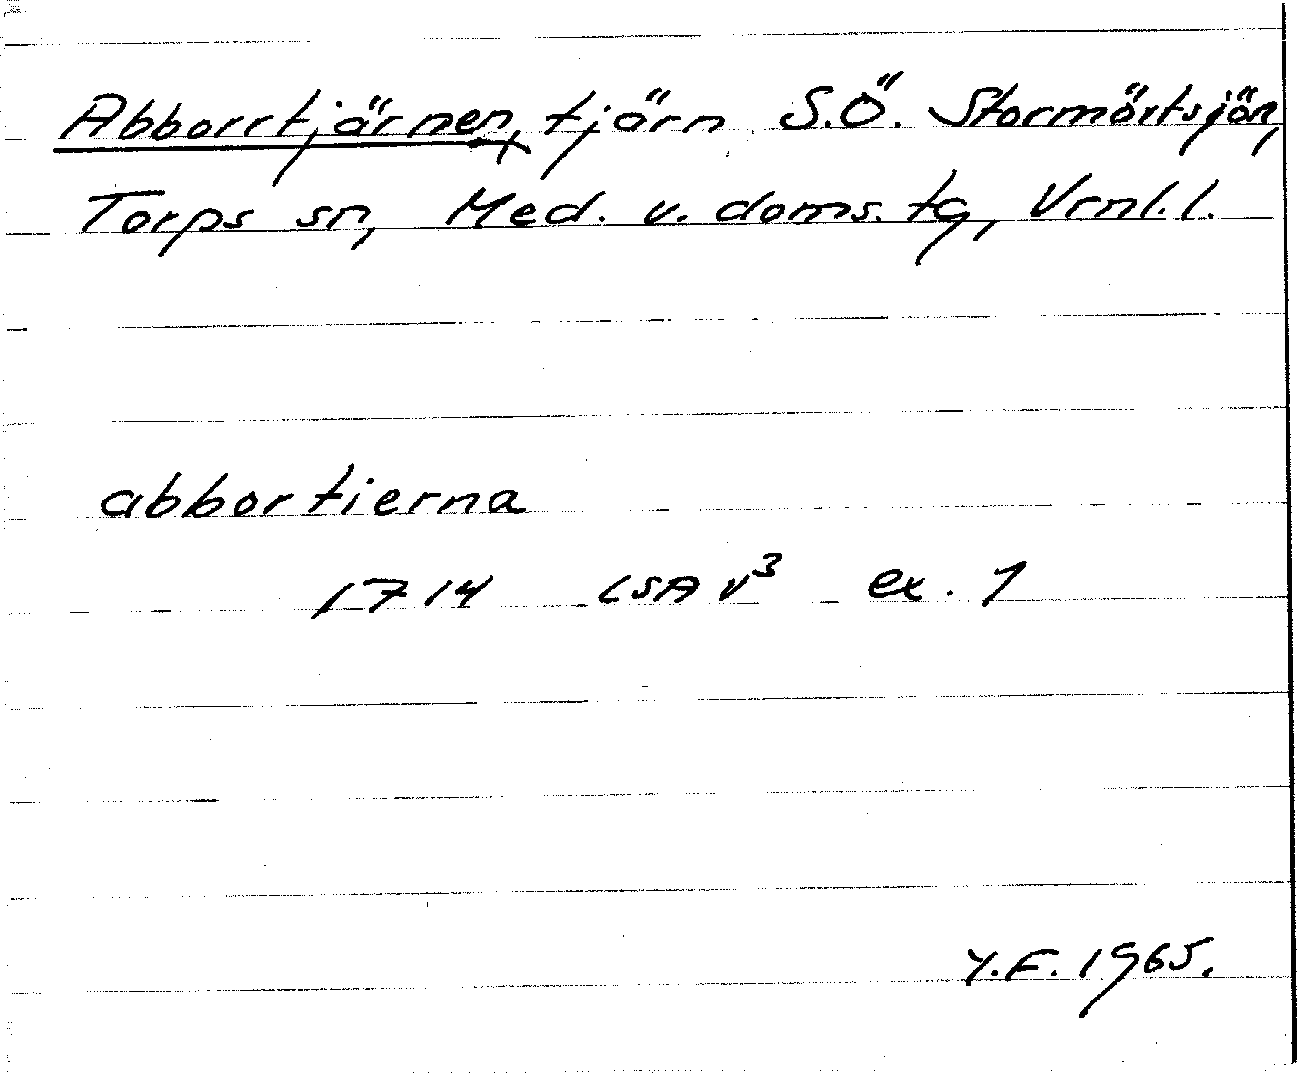 Abborrtjärnen, tjärn S.Ö. Stormörtsjön,
Torps sn, Med. v. doms. tg, Vrnl. l.
abbortierna
1714 LSA v³ ex. 1
Y.F. 1965.